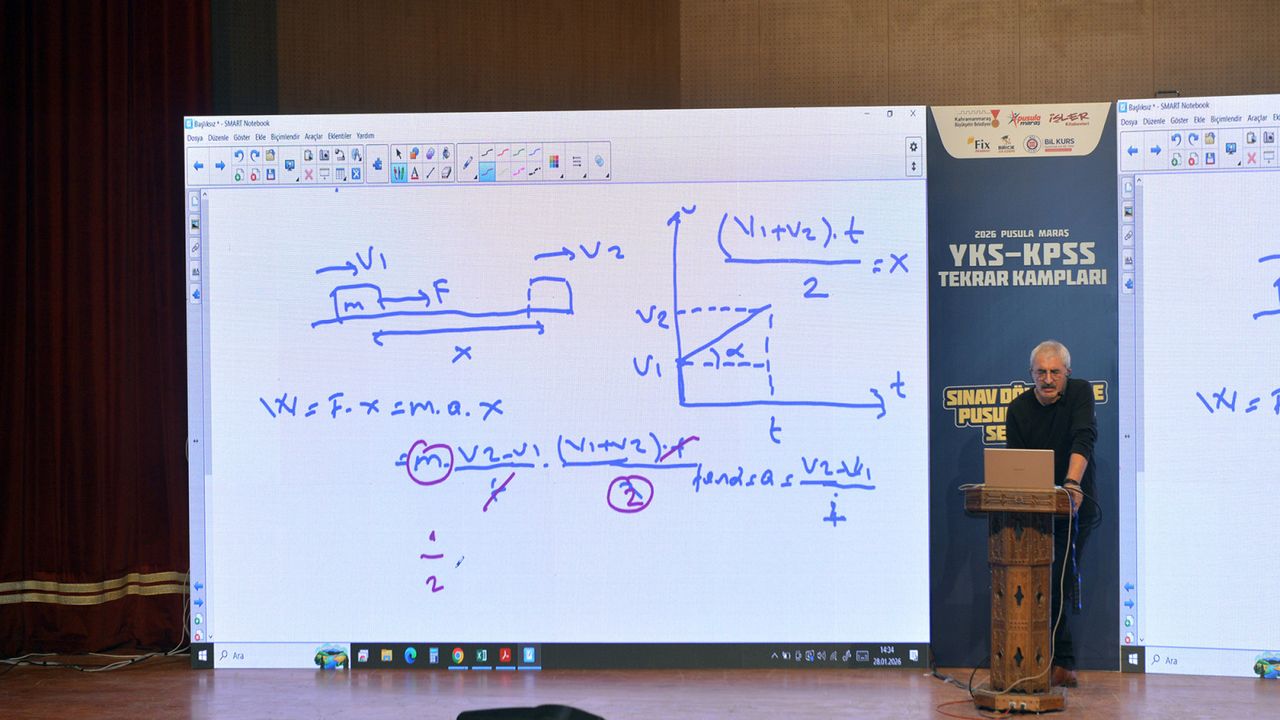 Başlıksız * - SMART Notebook
Dosya Düzenle Göster Ekle Biçimlendir Araçlar Eklentiler Yardım
V1
V2
m
F
x
W = F. x = m. a. x
= m. (V2-V1)/t . ((V1+V2).t)/2
1/2
υ
((V1+V2).t)/2 = x
V2
V1
α
t
t
tanα = a = (V2-V1)/t
Ara
14:34
28.01.2026
Kahramanmaraş
Büyükşehir Belediyesi
pusula
maraş
İŞLER
Kitabevleri
Fix
BİRİCİK
BİL KURS
2026 PUSULA MARAŞ
YKS-KPSS
TEKRAR KAMPLARI
SINAV
PUSUL
SE
Başlıksız * - SMART Notebook
Dosya Düzenle Göster Ekle Biçimlendir Araçlar
W = F
Ara